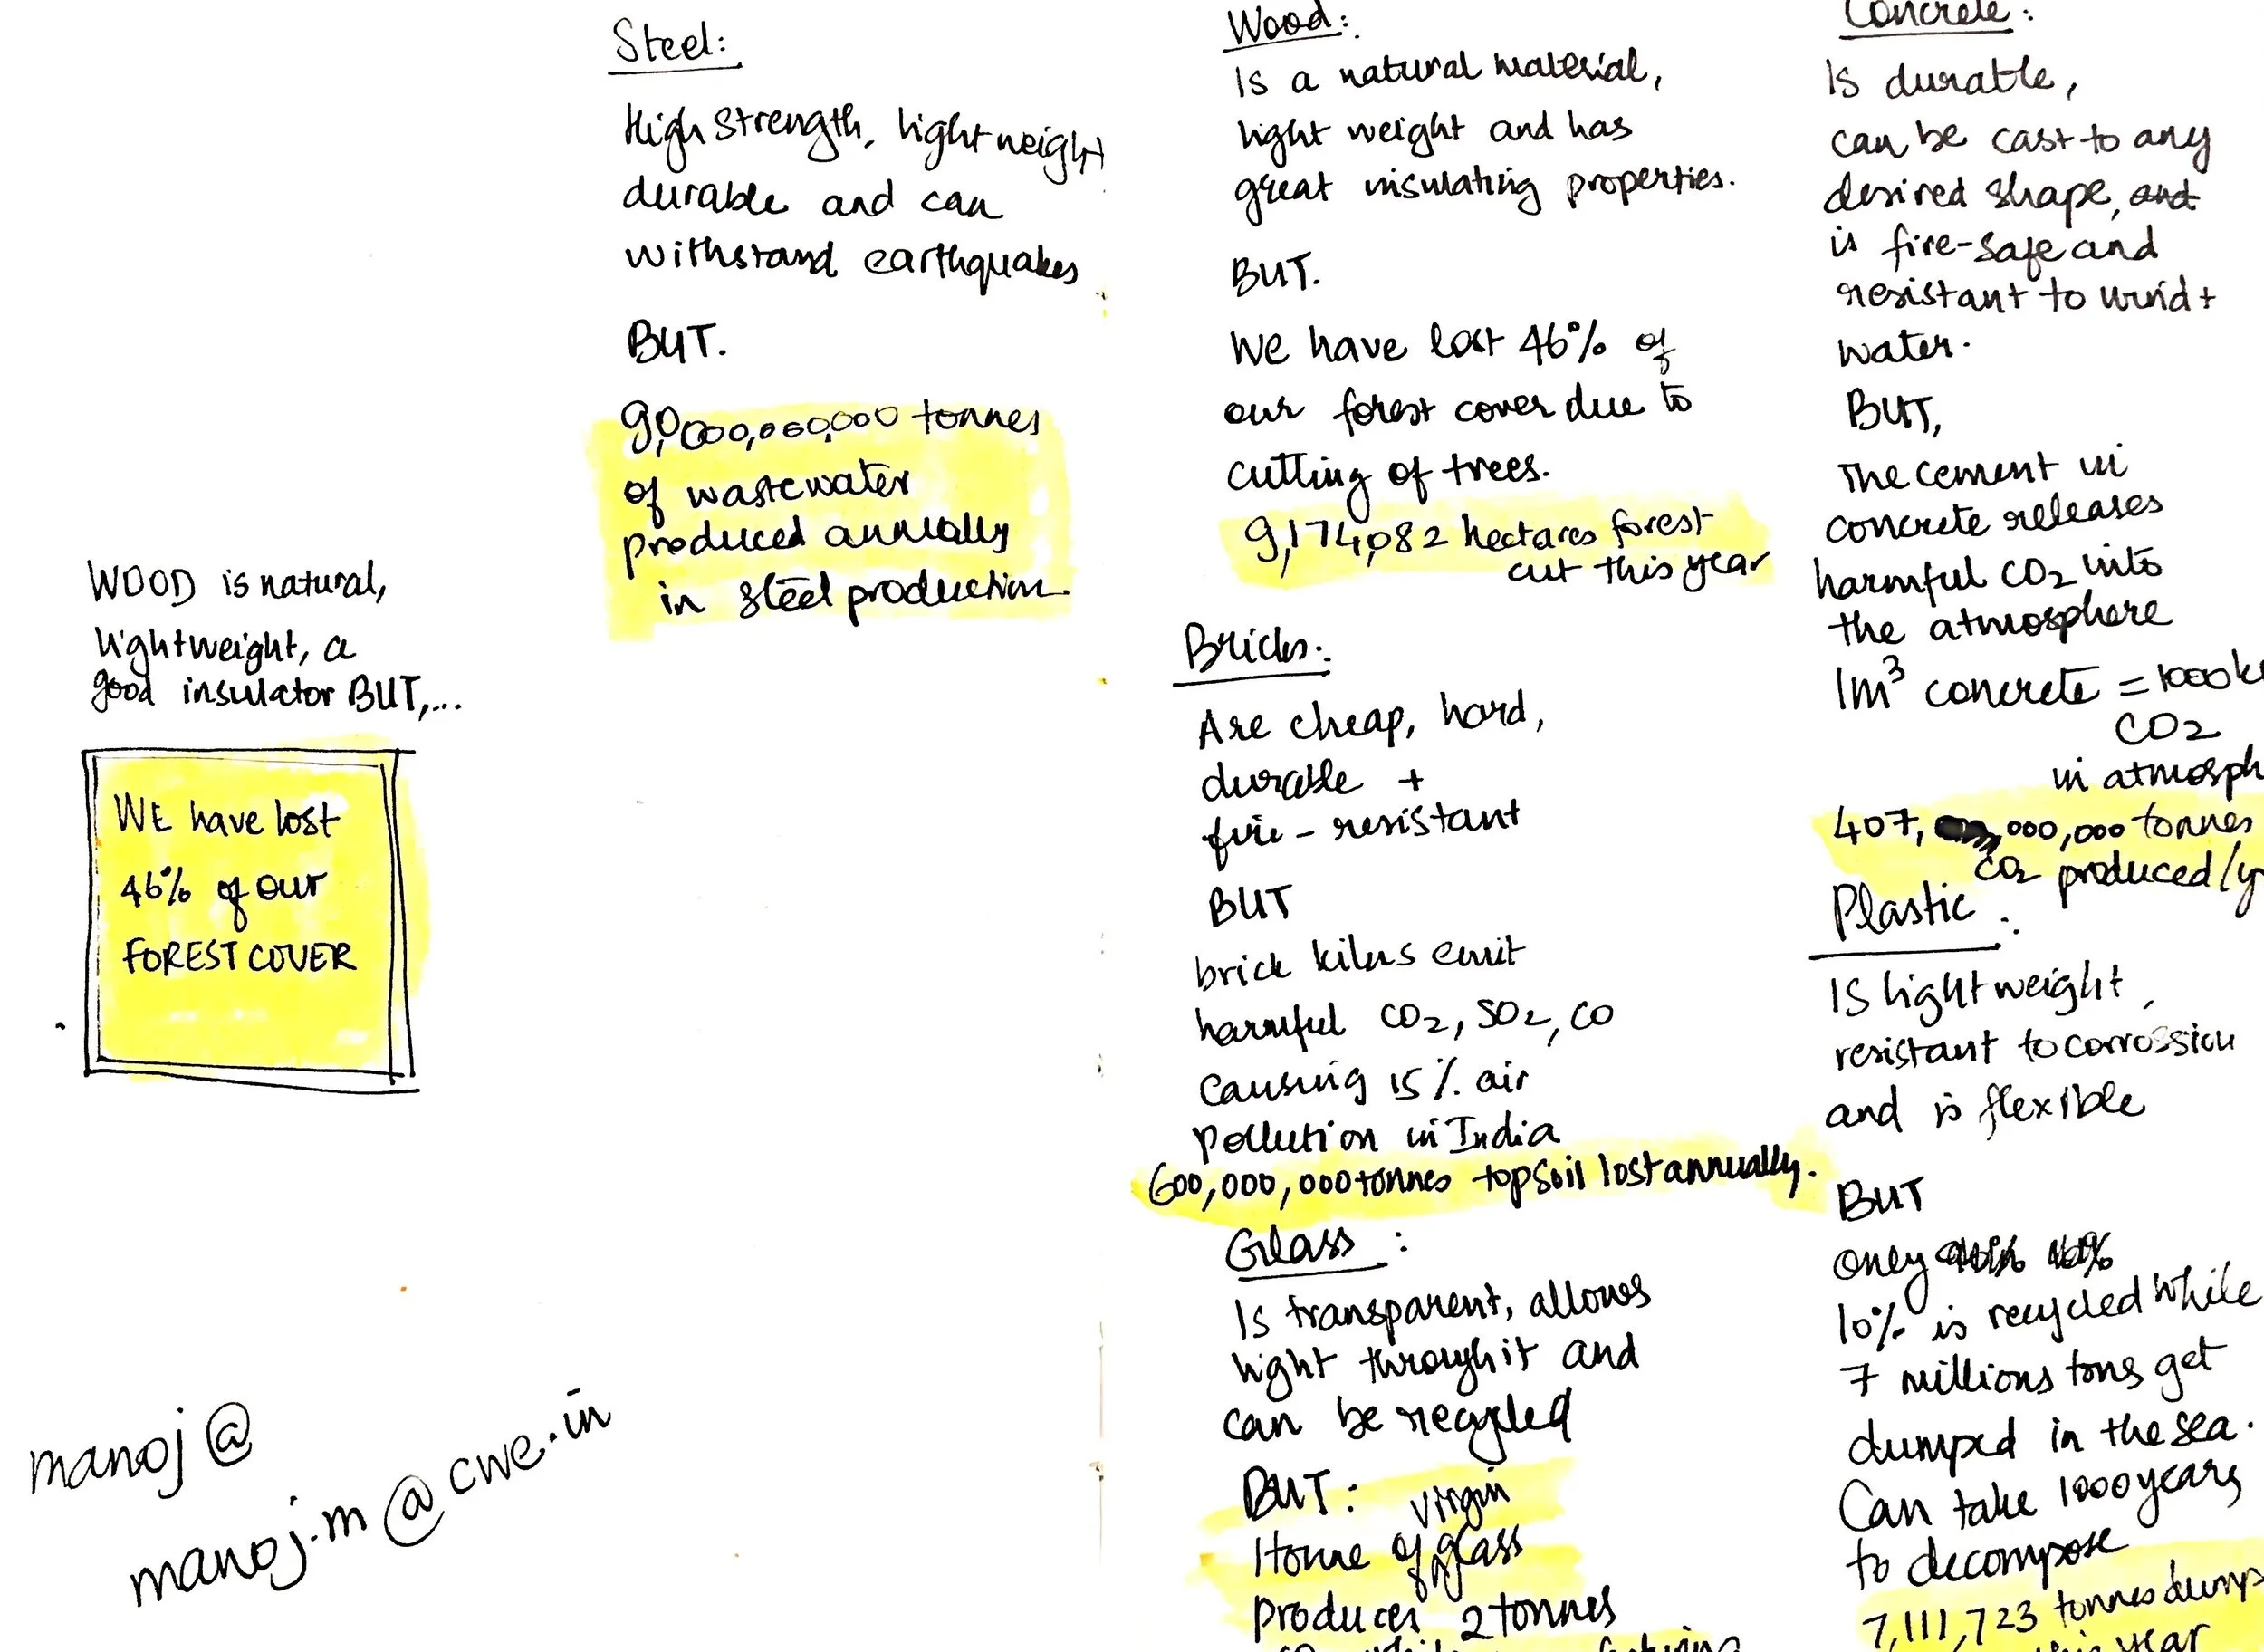 Steel:
High strength, lightweight
durable and can
withstand earthquakes
BUT.
90,000,000,000 tonnes
of wastewater
produced annually
in steel production.
WOOD is natural,
lightweight, a
good insulator BUT,...
WE have lost
46% of our
FOREST COVER
manoj@
manoj.m@cwe.in
Wood:
Is a natural material,
light weight and has
great insulating properties.
BUT.
We have lost 46% of
our forest cover due to
cutting of trees.
9,174,082 hectares forest
cut this year
Bricks:
Are cheap, hard,
durable +
fire-resistant
BUT
brick kilns emit
harmful CO2, SO2, CO
Causing 15% air
pollution in India
600,000,000 tonnes topsoil lost annually.
Glass:
Is transparent, allows
light through it and
can be recycled
BUT: virgin
1 tonne of glass
Produces 2 tonnes
Concrete:
Is durable,
can be cast to any
desired shape, and
is fire-safe and
resistant to wind +
water.
BUT,
The cement in
concrete releases
harmful CO2 into
the atmosphere
1m³ concrete = 1000k
CO2
in atmosph
407, ,000,000 tonnes
CO2 produced/y
Plastic:
Is lightweight,
resistant to corrossion
and is flexible
BUT
only
10% is recycled while
7 millions tons get
dumped in the sea.
Can take 1000 years
to decompose
7,111,723 tonnes dump
year